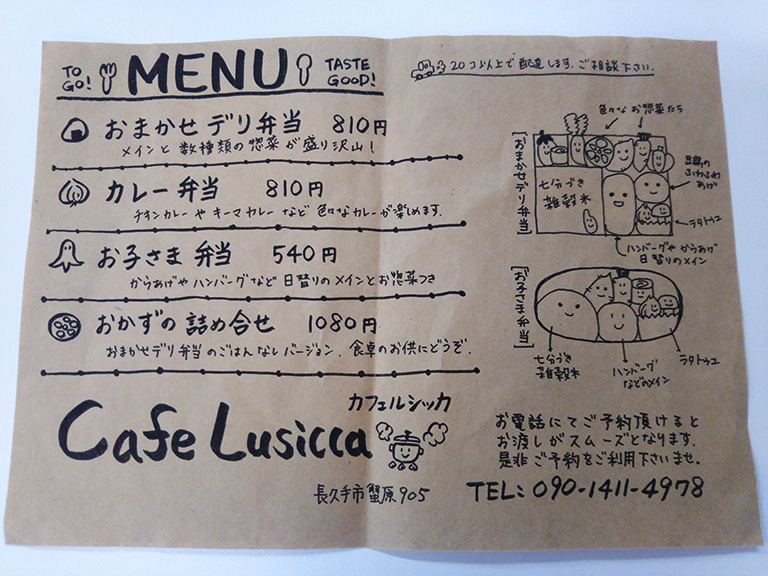 TO GO! MENU TASTE GOOD!
おまかせデリ弁当 810円
メインと数種類の惣菜が盛り沢山!
カレー弁当 810円
チキンカレーやキーマカレーなど色々なカレーが楽しめます.
お子さま弁当 540円
からあげやハンバーグなど日替りのメインとお惣菜つき
おかずの詰め合せ 1080円
おまかせデリ弁当のごはんなしバージョン. 食卓のお供にどうぞ.
カフェルシッカ
Cafe Lusicca
長久手市蟹原905
20コ以上で配達します. ご相談下さい.
色々なお惣菜たち
[おまかせデリ弁当]
七分づき
雑穀米
豆腐の
ふわふわ
あげ
ラタトゥユ
ハンバーグやからあげ
日替りのメイン
[お子さま弁当]
七分づき
雑穀米
ハンバーグ
などのメイン
ラタトゥユ
お電話にてご予約頂けると
お渡しがスムーズとなります.
是非ご予約をご利用下さいませ.
TEL: 090-1411-4978